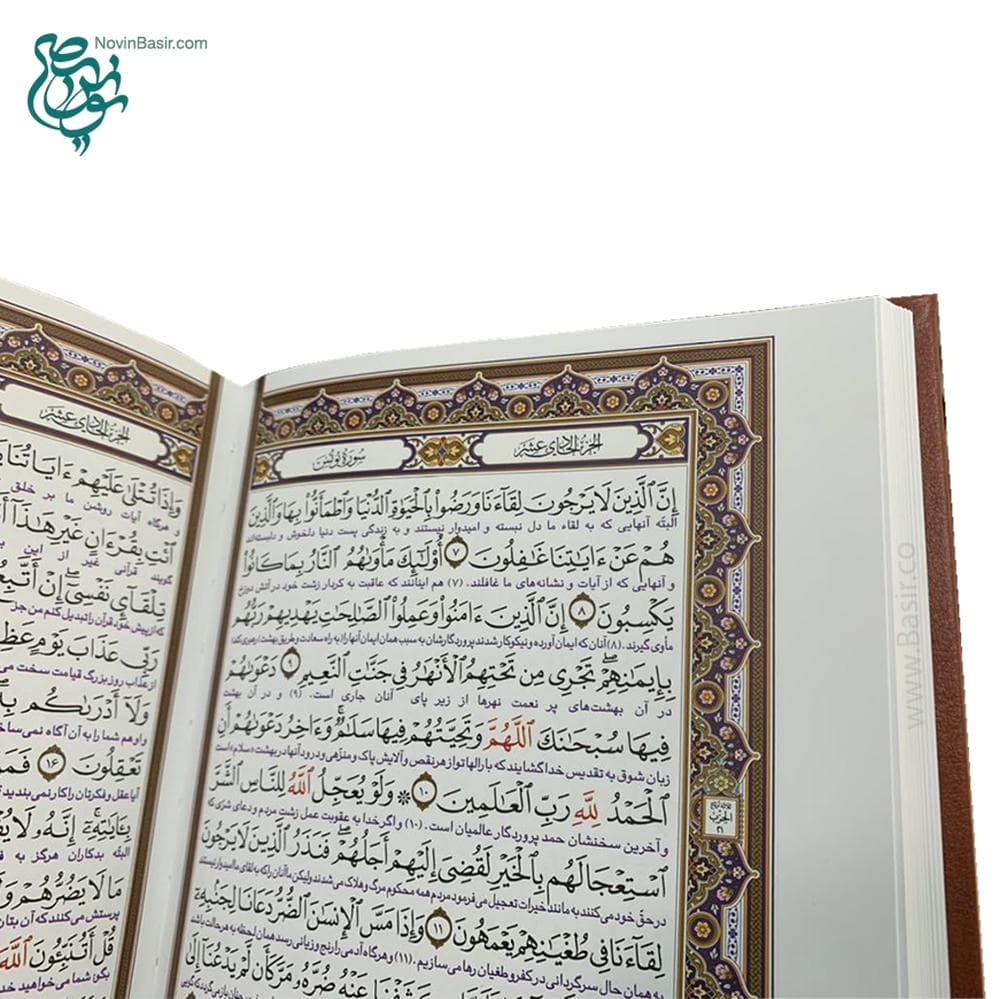 NovinBasir.com
الجزء الحادی عشر
سورة یونس
إِنَّ ٱلَّذِينَ لَا يَرْجُونَ لِقَآءَنَا وَرَضُوا۟ بِٱلْحَيَوٰةِ ٱلدُّنْيَا وَٱطْمَأَنُّوا۟ بِهَا وَٱلَّذِينَ
البته آنهایی که به لقاء ما دل نبسته و امیدوار نیستند و به زندگی پست دنیا دلخوش و دلبسته‌اند
هُمْ عَنْ ءَايَـٰتِنَا غَـٰفِلُونَ ۷ أُو۟لَـٰٓئِكَ مَأْوَىٰهُمُ ٱلنَّارُ بِمَا كَانُوا۟
و آنهایی که از آیات و نشانه‌های ما غافلند. (۷) هم اینانند که عاقبت به کردار زشت خود در آتش دوزخ
يَكْسِبُونَ ۸ إِنَّ ٱلَّذِينَ ءَامَنُوا۟ وَعَمِلُوا۟ ٱلصَّـٰلِحَـٰتِ يَهْدِيهِمْ رَبُّهُم
مأوی گیرند. (۸) آنان که ایمان آورده و نیکوکار شدند پروردگارشان به سبب همان ایمان آنها را به راه سعادت و طریق بهشت رهبری کند
بِإِيمَـٰنِهِمْ تَجْرِى مِن تَحْتِهِمُ ٱلْأَنْهَـٰرُ فِى جَنَّـٰتِ ٱلنَّعِيمِ ۹ دَعْوَىٰهُمْ
در آن بهشت‌های پر نعمت نهرها از زیر پای آنان جاری است. (۹) و در آن بهشت
فِيهَا سُبْحَـٰنَكَ ٱللَّهُمَّ وَتَحِيَّتُهُمْ فِيهَا سَلَـٰمٌ وَءَاخِرُ دَعْوَىٰهُمْ أَنِ
زبان شوق به تقدیس خدا گشایند که بارالها تو از هر نقص و آلایش پاک و منزّهی و درود آنها در بهشت «سلام» است
ٱلْحَمْدُ لِلَّهِ رَبِّ ٱلْعَـٰلَمِينَ ۱۰ ۞ وَلَوْ يُعَجِّلُ ٱللَّهُ لِلنَّاسِ ٱلشَّرَّ
و آخرین سخنشان حمد پروردگار عالمیان است. (۱۰) و اگر خدا به عقوبت عمل زشت مردم و دعای شرّی که
ٱسْتِعْجَالَهُم بِٱلْخَيْرِ لَقُضِىَ إِلَيْهِمْ أَجَلُهُمْ فَنَذَرُ ٱلَّذِينَ لَا يَرْجُونَ
در حق خود می‌کنند به مانند خیرات تعجیل می‌فرمود مردم همه محکوم مرگ و هلاک می‌شدند ولیکن ما آنان را که به لقای ما امیدوار نیستند
لِقَآءَنَا فِى طُغْيَـٰنِهِمْ يَعْمَهُونَ ۱۱ وَإِذَا مَسَّ ٱلْإِنسَـٰنَ ٱلضُّرُّ دَعَانَا لِجَنۢبِهِۦٓ
به همان حال سرگردانی در کفر و طغیان رها می‌سازیم. (۱۱) و هرگاه آدمی را رنج و زیانی رسد همان لحظه به هر حالت باشد
كَشَفْنَا عَنْهُ ضُرَّهُۥ مَرَّ كَأَن لَّمْ يَدْعُنَآ إِلَىٰ
الحزب
۲۱
الجزء الحادی عشر
وَإِذَا تُتْلَىٰ عَلَيْهِمْ ءَايَاتُنَا
و هرگاه آیات روشن ما بر خلق
ٱئْتِ بِقُرْءَانٍ غَيْرِ هَـٰذَآ
گویند قرآنی غیر از این
تِلْقَآئِ نَفْسِىٓ إِنْ أَتَّبِعُ
که از پیش خود قرآن را تبدیل کنم من جز
رَبِّى عَذَابَ يَوْمٍ عَظِ
از عذاب روز بزرگ قیامت سخت می
وَلَآ أَدْرَىٰكُم بِهِ
و او هم شما را به آن آگاه نمی‌ساخ
تَعْقِلُونَ ۱۶ فَمَ
آیا عقل و فکرتان را کار نمی‌بندید
بِـَٔايَـٰتِهِۦٓ إِنَّهُۥ لَا يُفْ
البته بدکاران هرگز به ف
مَا لَا يَضُرُّهُمْ وَ
پرستش می‌کنند که آن بتان
قُلْ أَتُنَبِّـُٔونَ ٱللَّهَ
بگو: شما می‌خواهید خدا
www.Basir.co